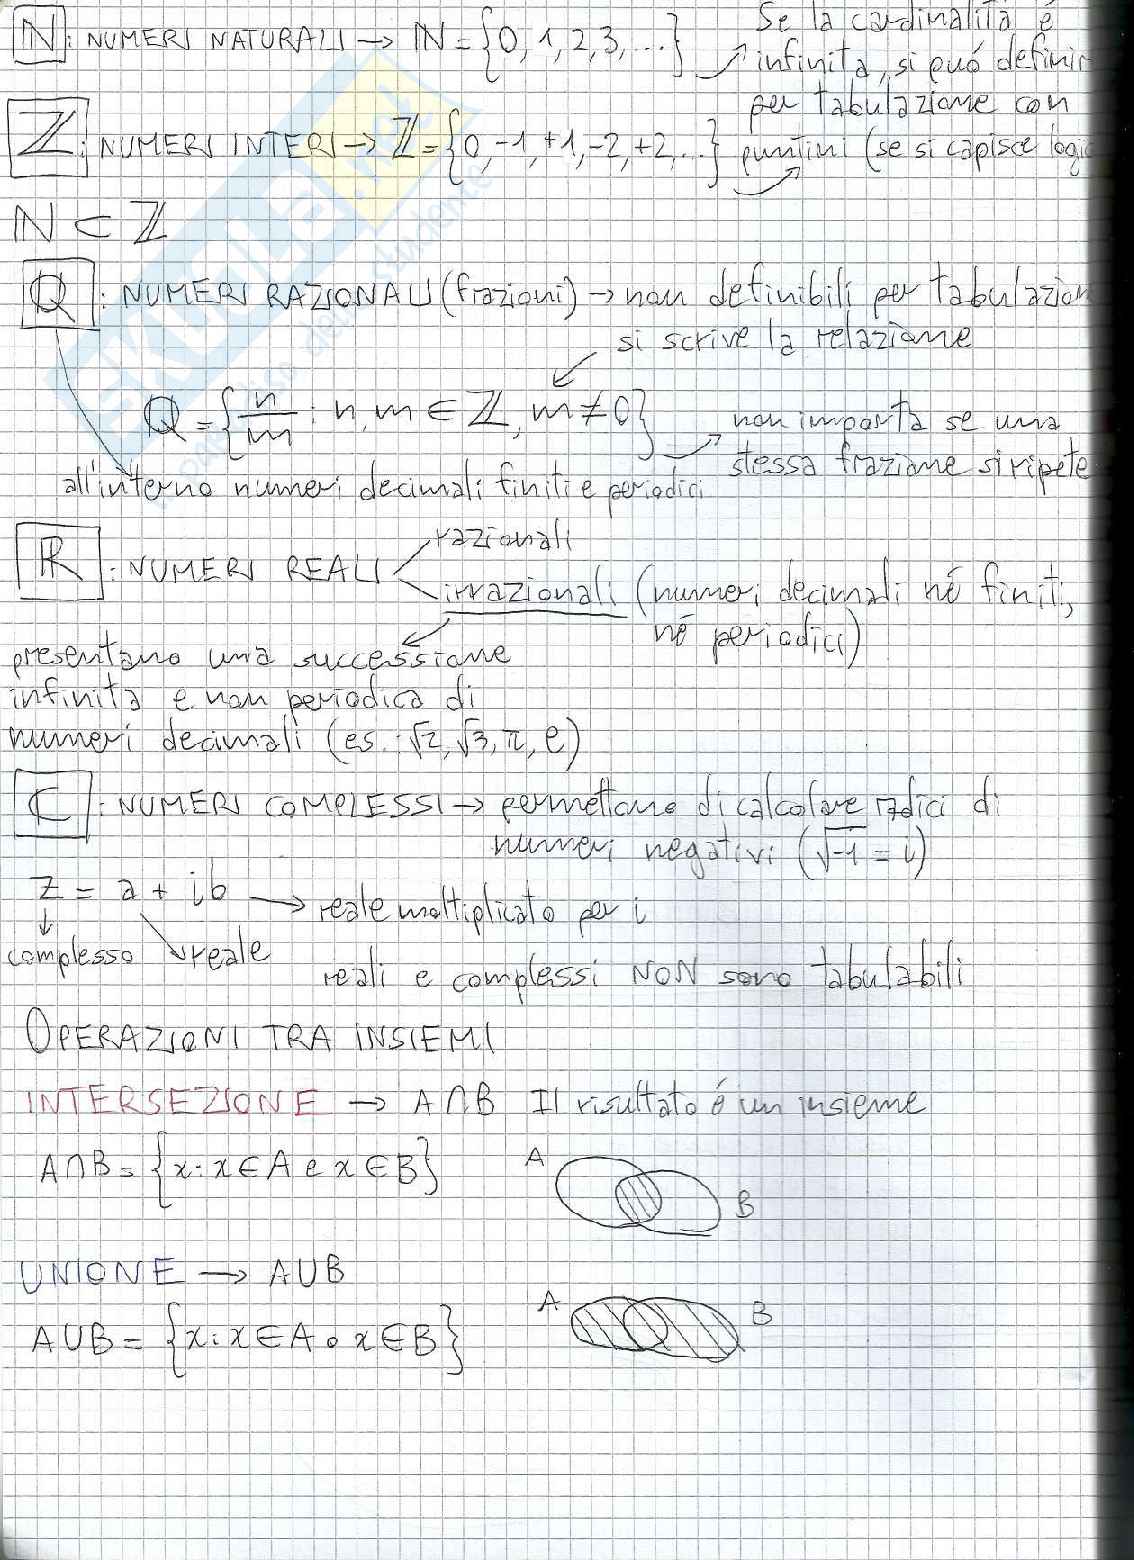 ℕ: NUMERI NATURALI → ℕ = {0, 1, 2, 3, ...}
Se la cardinalità é
infinita, si puó definir
per tabulazione con
puntini (se si capisce logic
ℤ: NUMERI INTERI → ℤ = {0, -1, +1, -2, +2, ...}
ℕ ⊂ ℤ
ℚ: NUMERI RAZIONALI (frazioni) → non definibili per tabulazion
si scrive la relazione
ℚ = {n/m : n, m ∈ ℤ, m ≠ 0}
non importa se una
stessa frazione si ripete
all'interno numeri decimali finiti e periodici
ℝ: NUMERI REALI
razionali
irrazionali (numeri decimali né finiti,
né periodici)
presentano una successione
infinita e non periodica di
numeri decimali (es.: √2, √3, π, e)
ℂ: NUMERI COMPLESSI → permettono di calcolare radici di
numeri negativi (√-1 = i)
z = a + ib → reale moltiplicato per i
complesso
reale
reali e complessi NON sono tabulabili
OPERAZIONI TRA INSIEMI
INTERSEZIONE → A∩B Il risultato é un insieme
A∩B = {x : x ∈ A e x ∈ B}
A
B
UNIONE → A∪B
A∪B = {x : x ∈ A o x ∈ B}
A
B
SKUOLA.net
il paradiso dello studente